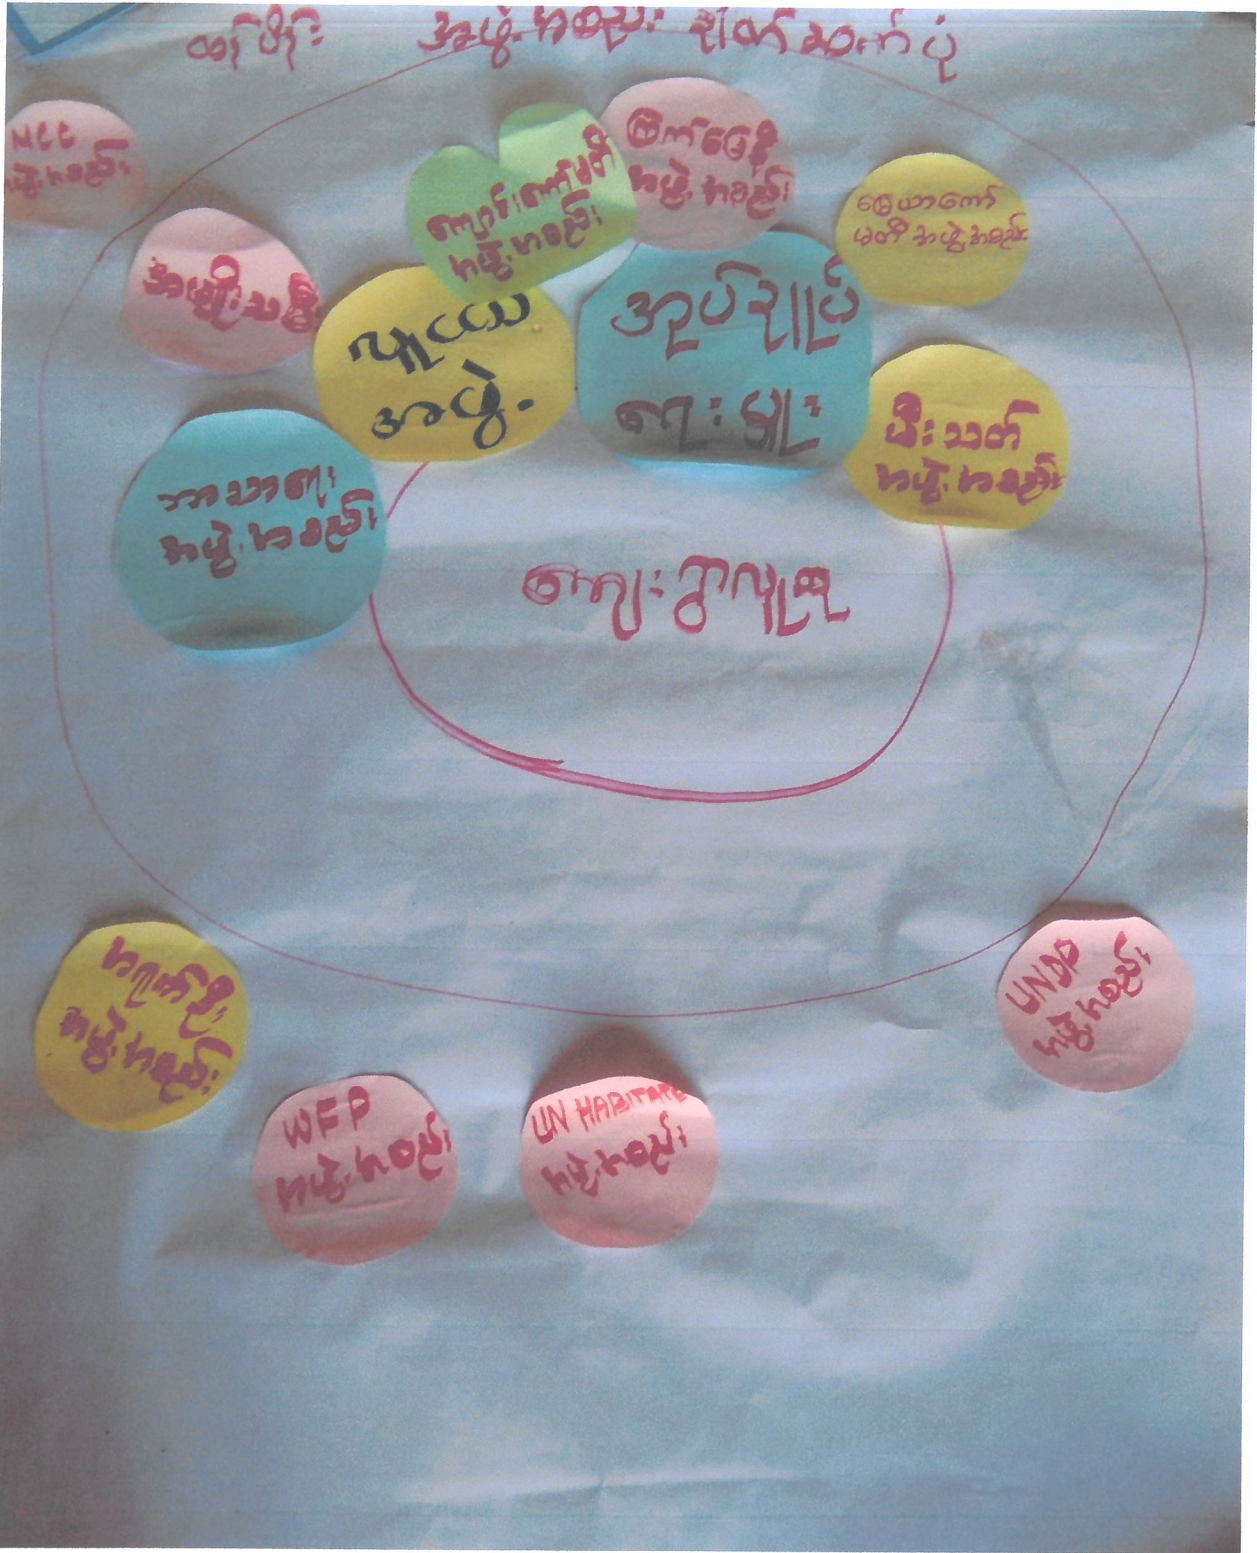 အဖွဲ့အစည်း ချိတ်ဆက်ပုံ
MCC
အဖွဲ့အစည်း
အမျိုးသမီး
ကျောင်းကော်မတီ
အဖွဲ့အစည်း
ကြက်ခြေနီ
အဖွဲ့အစည်း
မြေယာကော်
မတီအဖွဲ့အစည်း
လူငယ်
အဖွဲ့
အုပ်ချုပ်
ရေးမှူး
မီးသတ်
အဖွဲ့အစည်း
ဘာသာရေး
အဖွဲ့အစည်း
ကျေးရွာလူထု
အဖွဲ့အစည်း
WFP
အဖွဲ့အစည်း
UN HABITATE
အဖွဲ့အစည်း
UNDP
အဖွဲ့အစည်း